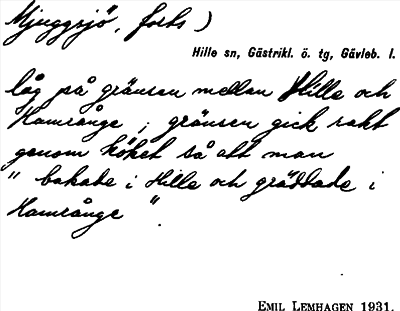 Mjuggsjö, forts)
Hille sn, Gästrikl. ö. tg, Gävleb. l.
låg på gränsen mellan Hille och
Hamrånge ; gränsen gick rakt
genom köket så att man
" bakade i Hille och gräddade i
Hamrånge ".
EMIL LEMHAGEN 1931.